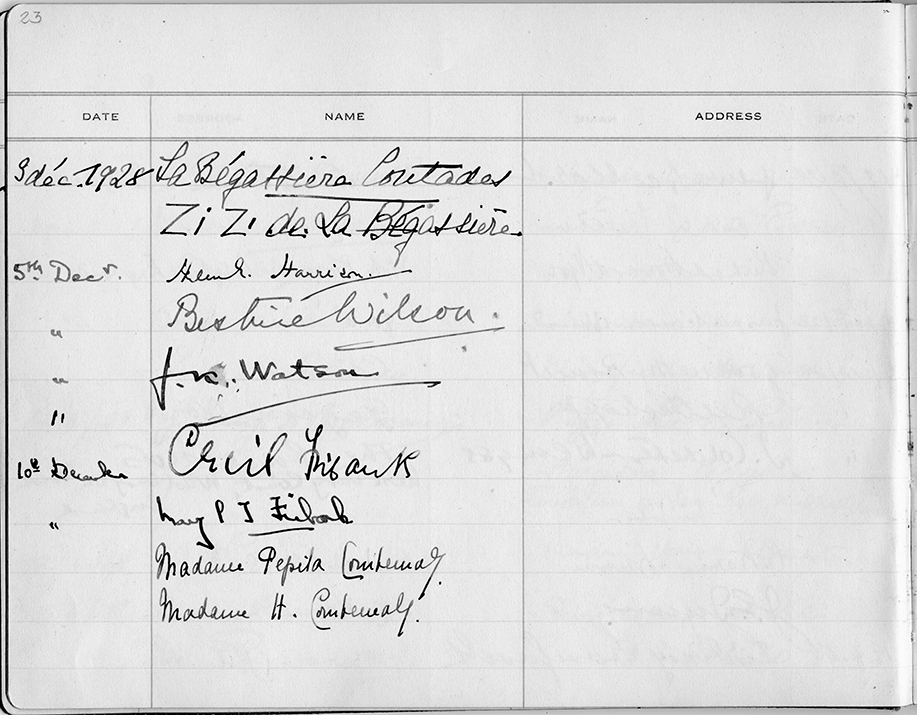 23
DATE NAME ADDRESS
3 déc. 1928 La Bégassière Contades
Zizi de La Bégassière
5th Decr. Harrison
" Beatrice Wilson.
" J. K. Watson
" Cecil Firbank
10th December
" May P J Firbank
Madame Pepita
Madame H.